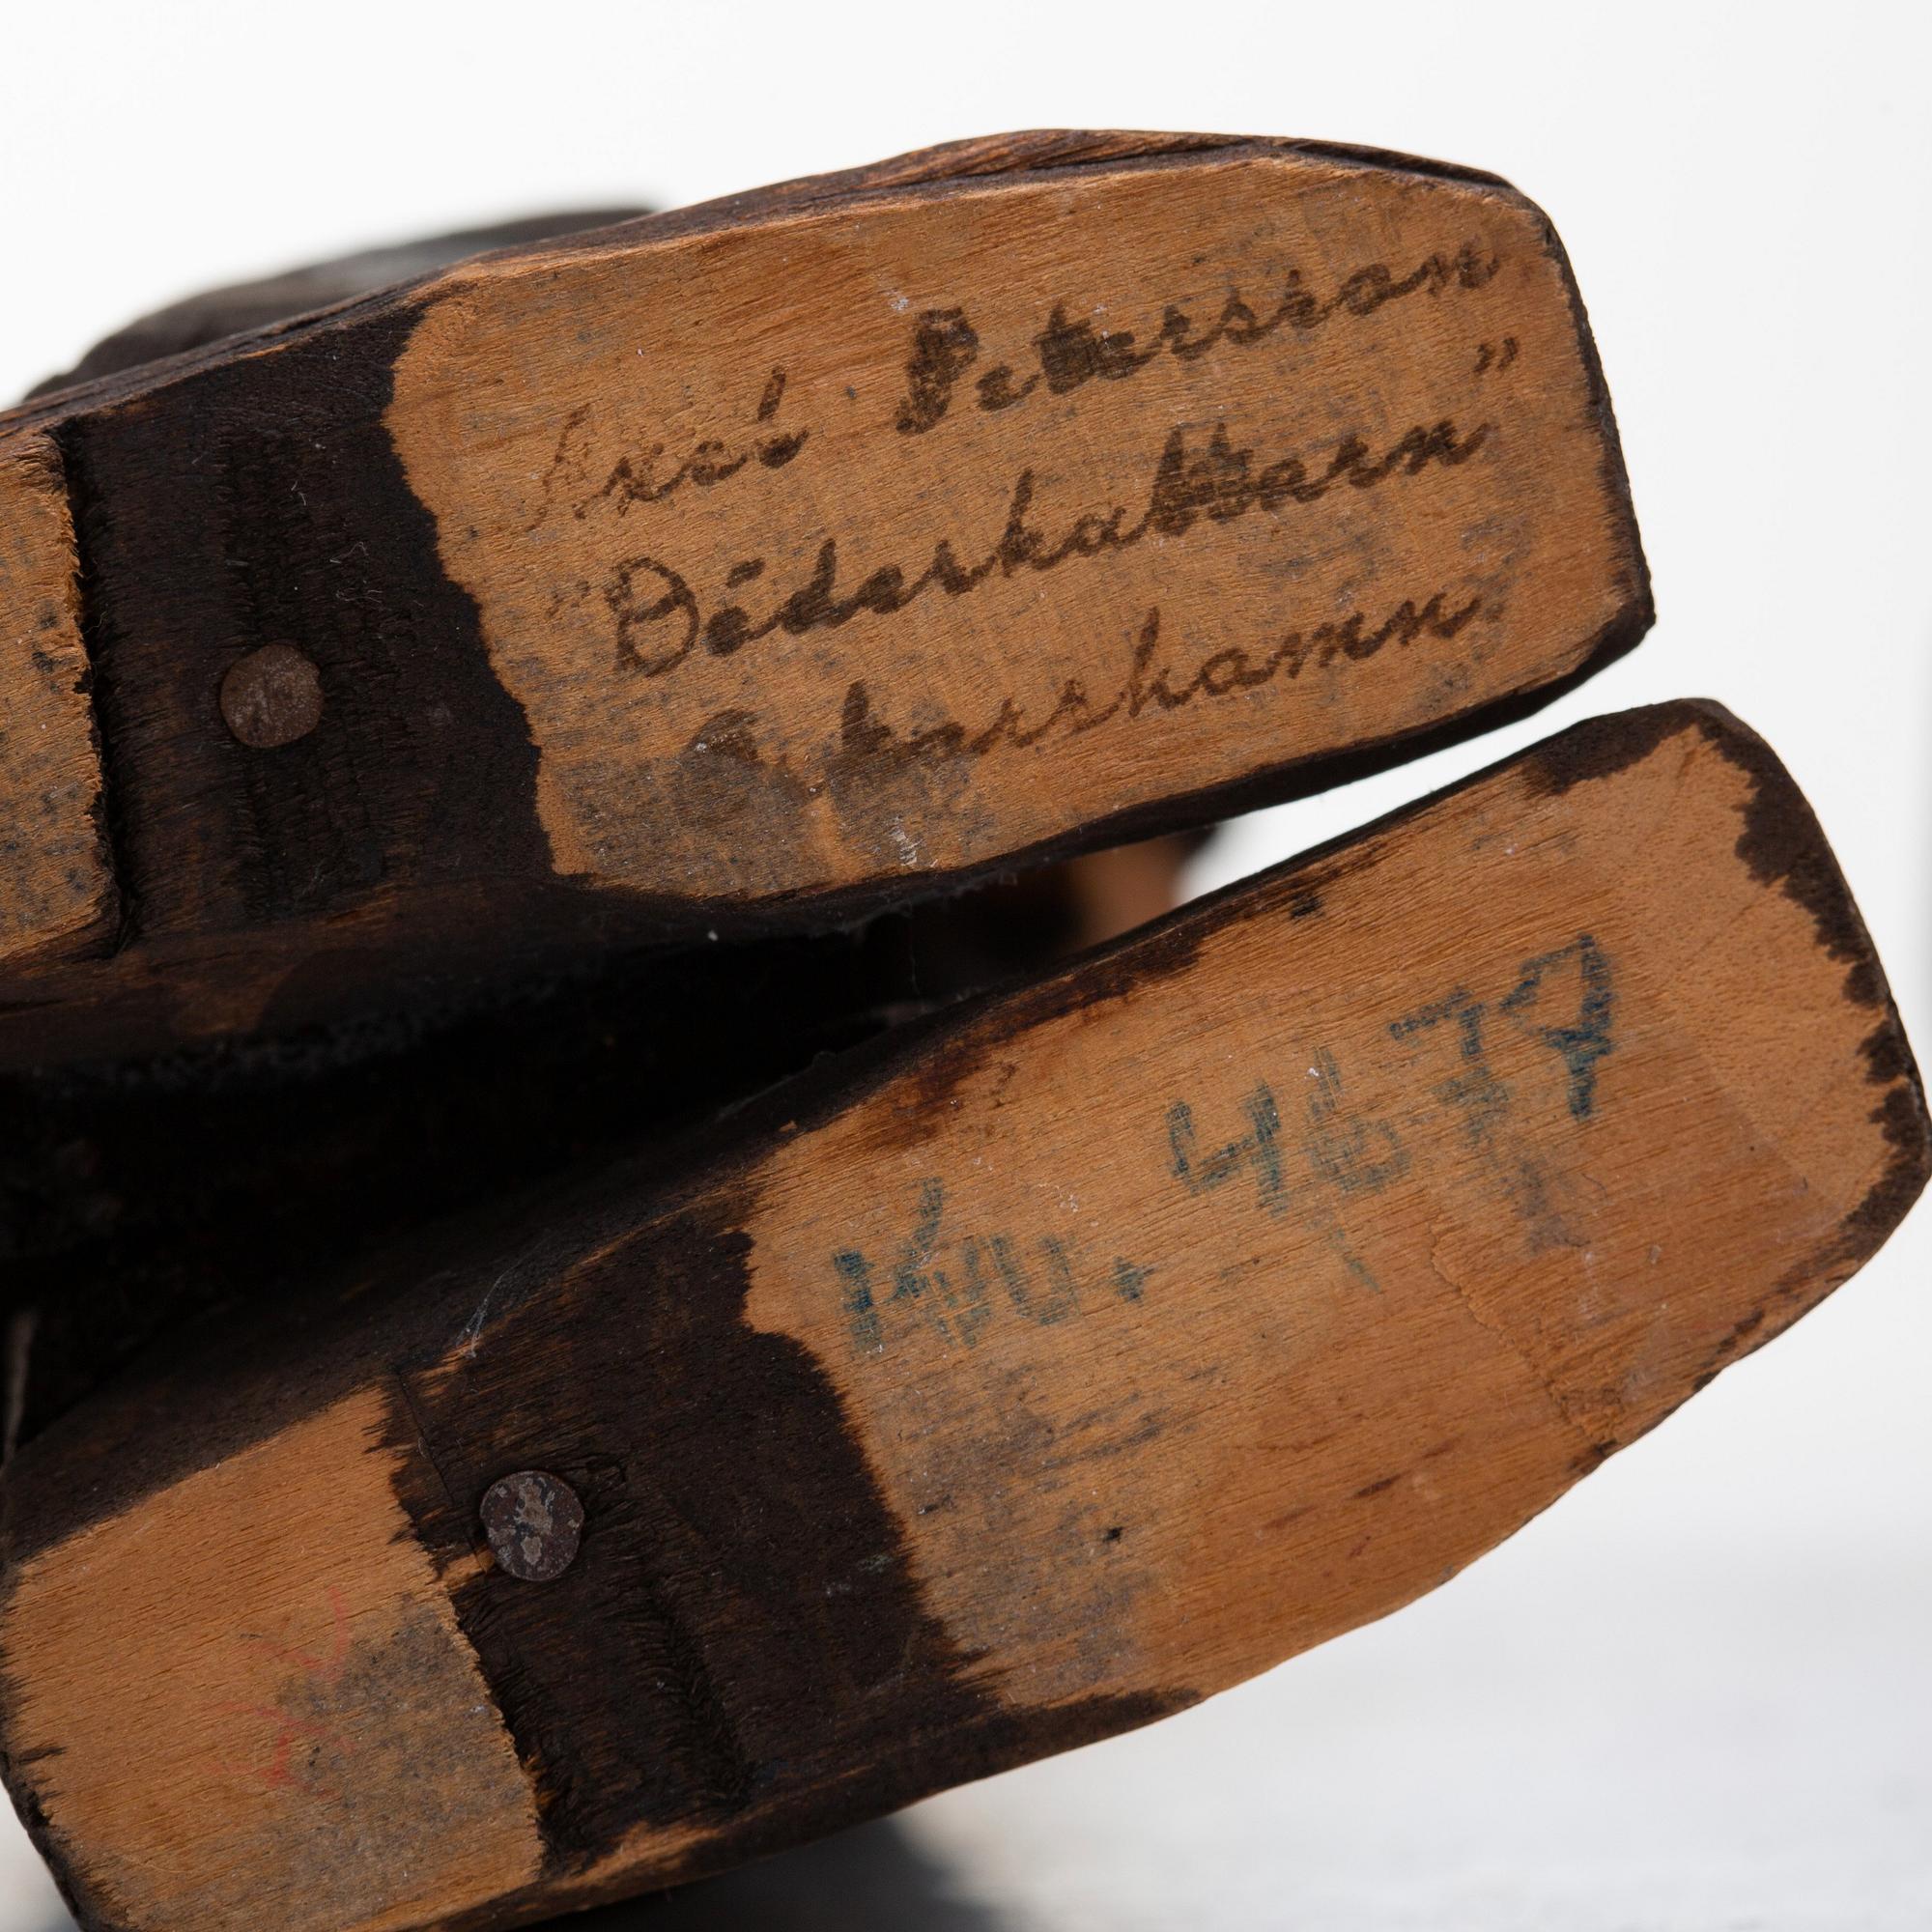 Axel Petersson
"Döderhattarn"
Oskarshamn
Nu. 4679